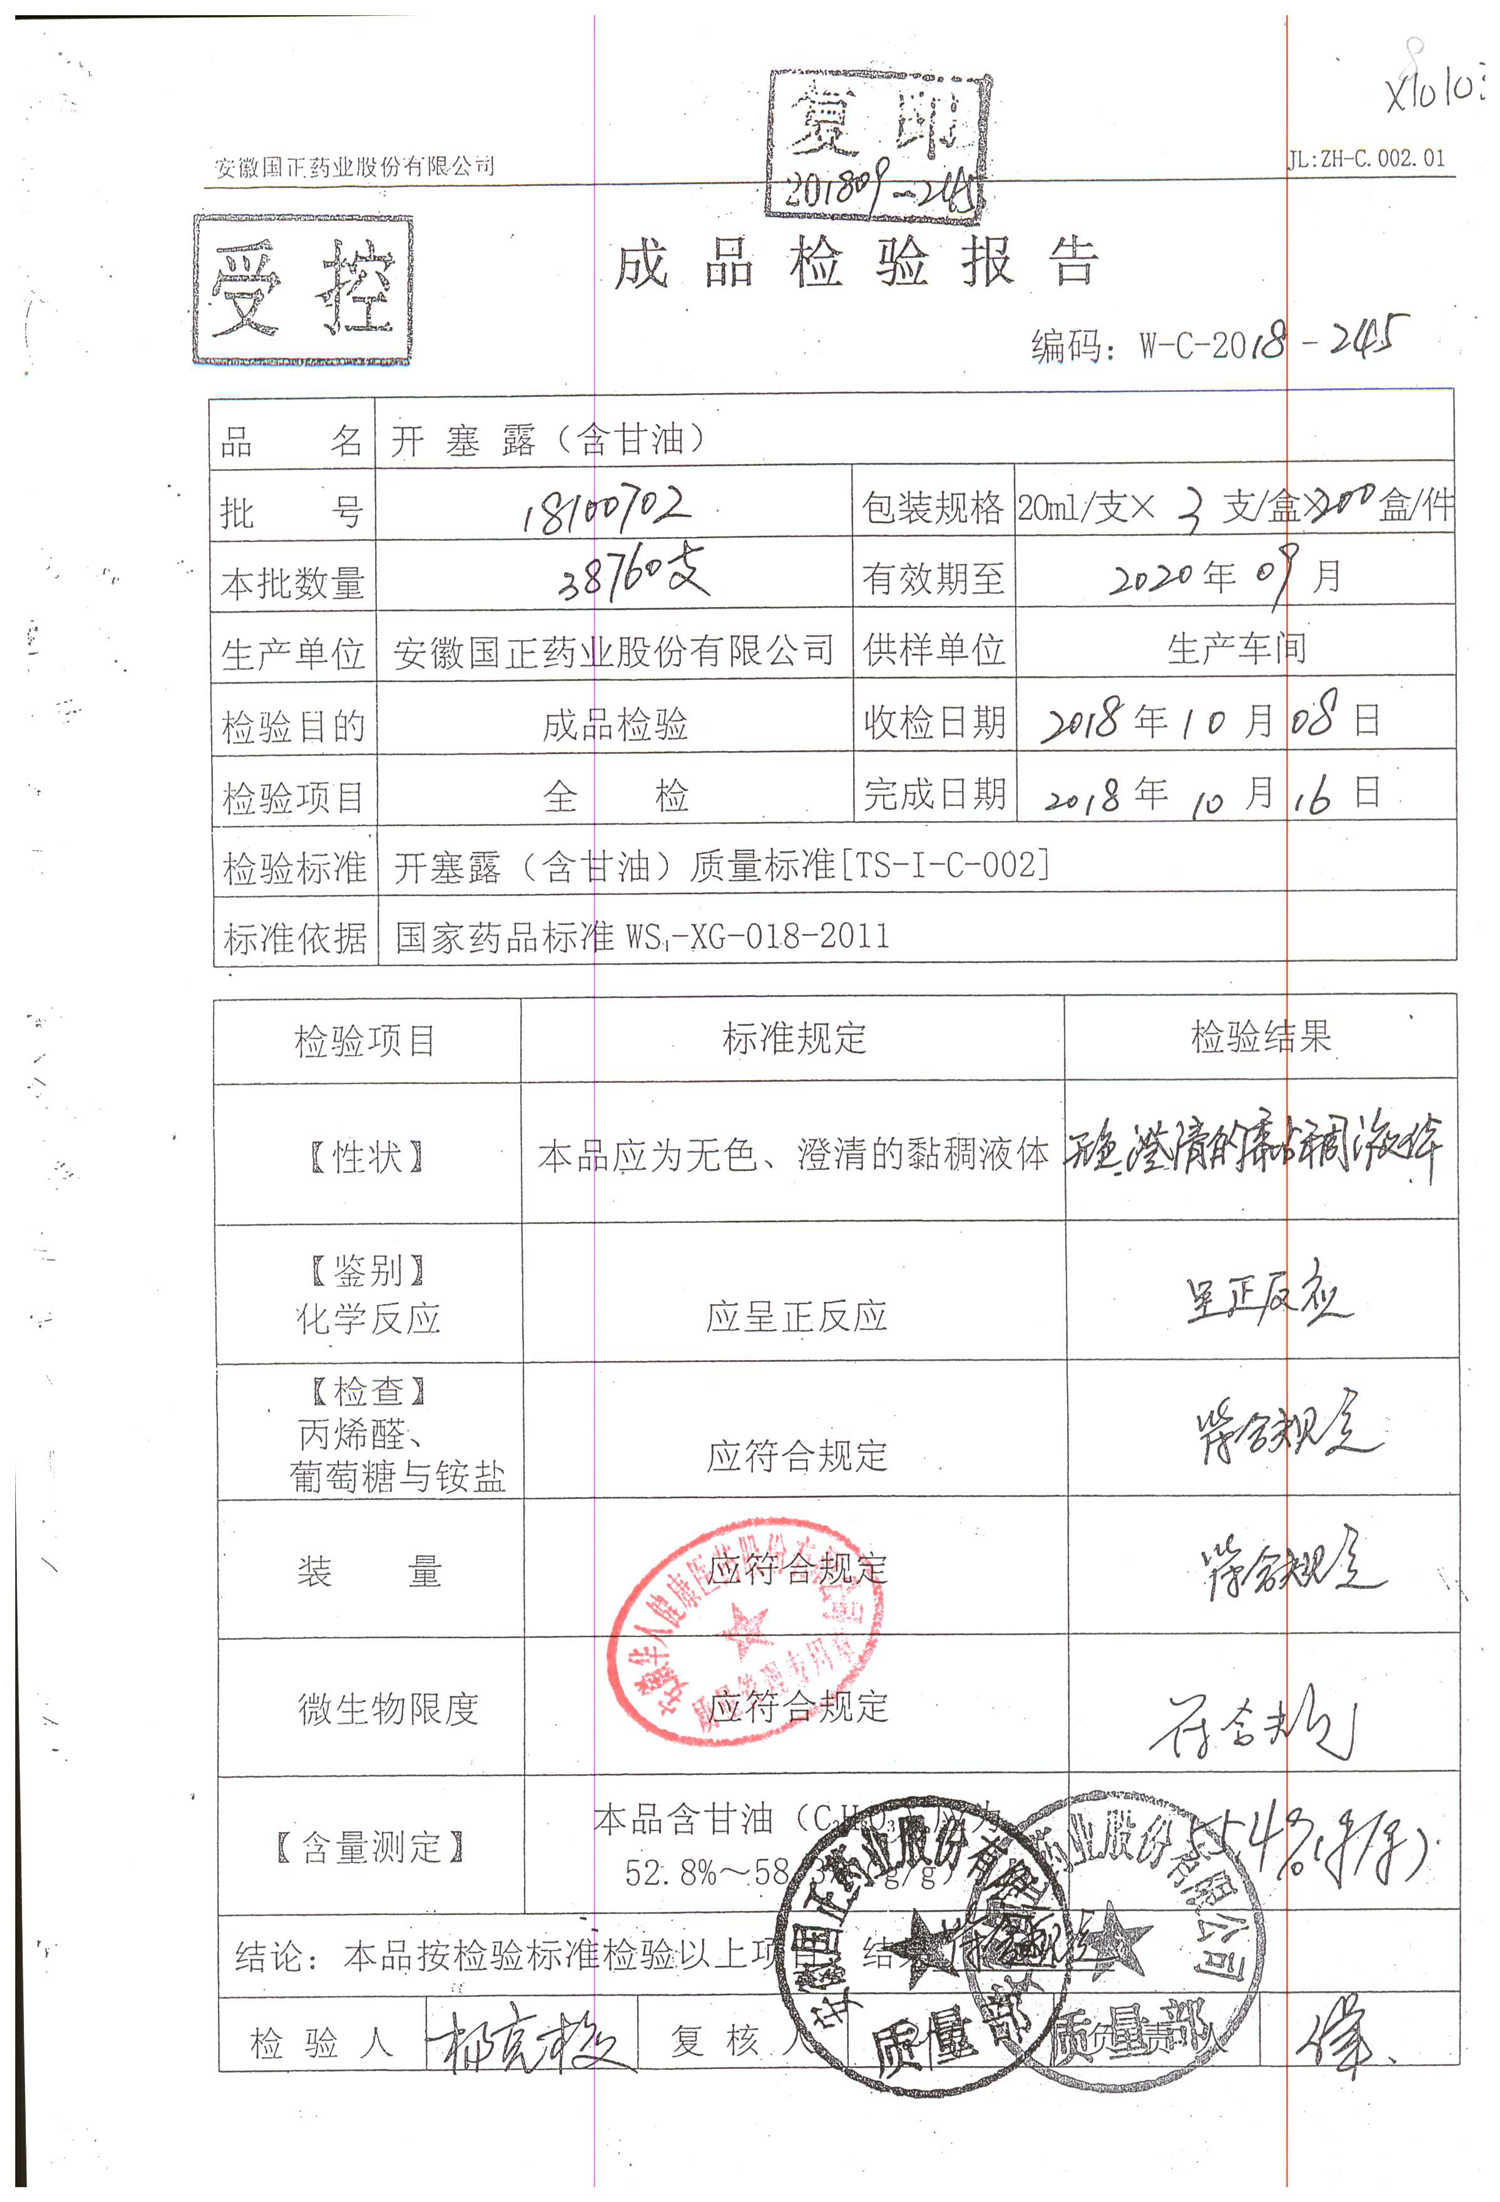 安徽国正药业股份有限公司
复印
201809-245
JL:ZH-C.002.01
受控
成品检验报告
编码：W-C-2018-245
品 名 开塞露（含甘油）
批 号 18100702 包装规格 20ml/支×3支/盒×200盒/件
本批数量 38760支 有效期至 2020年09月
生产单位 安徽国正药业股份有限公司 供样单位 生产车间
检验目的 成品检验 收检日期 2018年10月08日
检验项目 全 检 完成日期 2018年10月16日
检验标准 开塞露（含甘油）质量标准[TS-I-C-002]
标准依据 国家药品标准 WS₁-XG-018-2011
检验项目 标准规定 检验结果
【性状】 本品应为无色、澄清的黏稠液体 无色、澄清的黏稠液体
【鉴别】
化学反应 应呈正反应 呈正反应
【检查】
丙烯醛、
葡萄糖与铵盐 应符合规定 符合规定
装 量 应符合规定 符合规定
微生物限度 应符合规定 符合规定
安徽华人健康医药股份有限公司
质量管理专用章
【含量测定】 本品含甘油（C₃H₈O₃）应为
52.8%～58.3%（g/g） 55.4%(g/g)
结论：本品按检验标准检验以上项目 结果符合规定
安徽国正药业股份有限公司
质量部
安徽国正药业股份有限公司
质量部
检验人 复核人 负责人